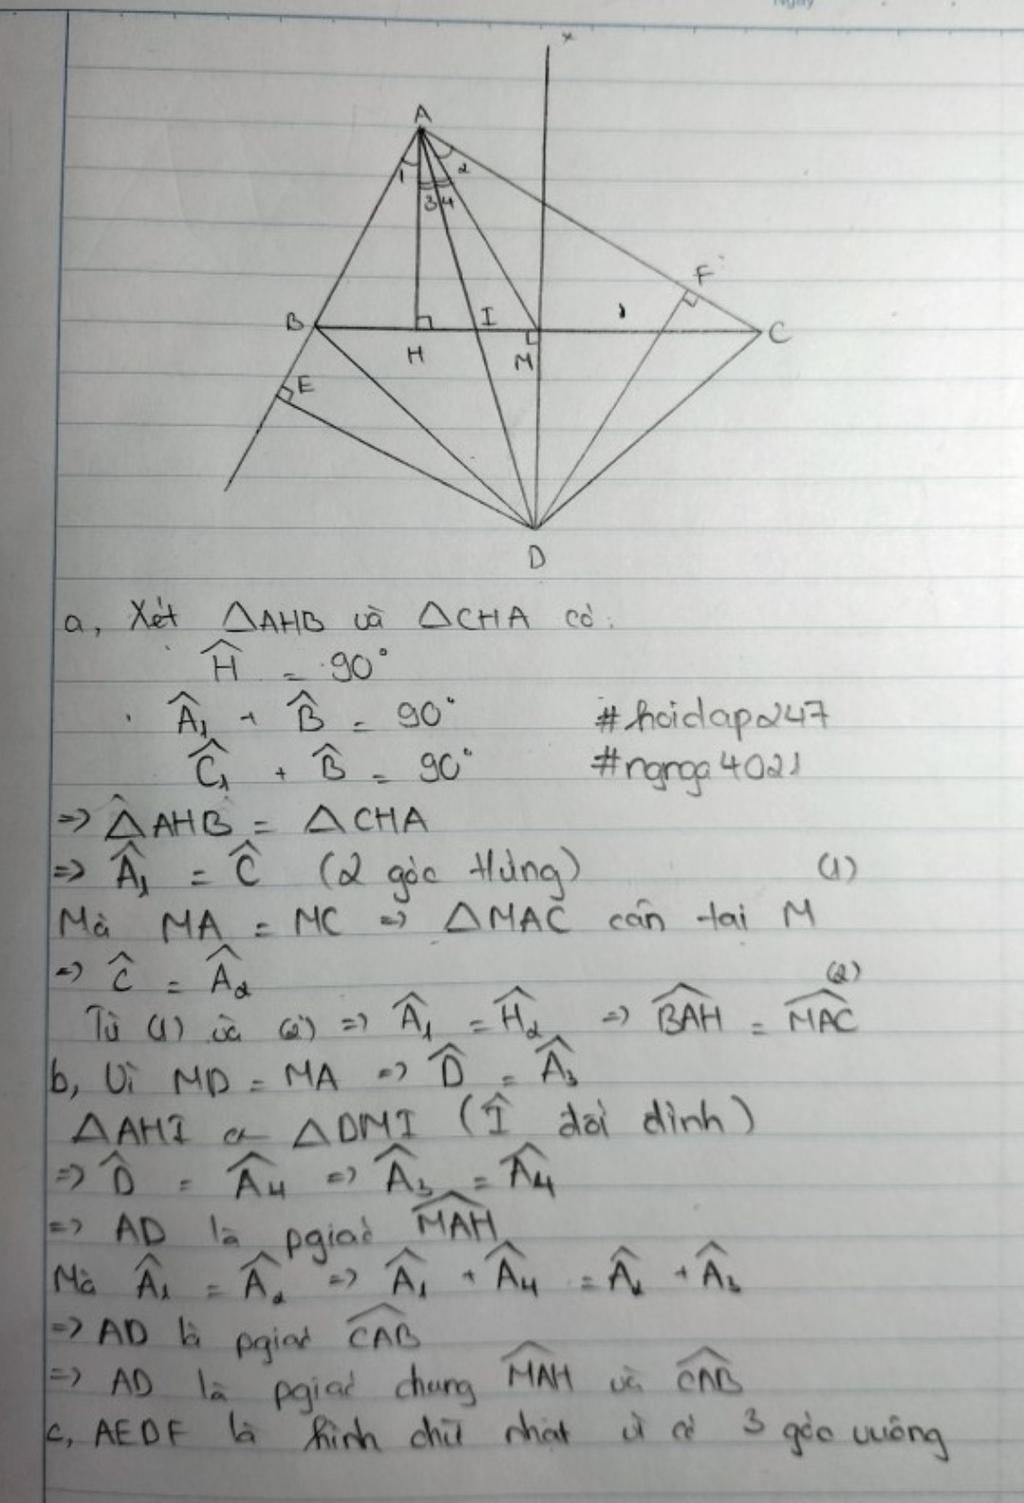 Ngày
x
A
1 2
3 4
F
B I C
H M
E
D
a, Xét △AHB và △CHA có:
Ĥ = 90°
Â₁ + B̂ = 90° #hoidap247
Ĉ₁ + B̂ = 90° #ngnga4021
=> △AHB = △CHA
=> Â₁ = Ĉ (2 góc tứng) (1)
Mà MA = MC => △MAC cân tại M
=> Ĉ = Â₂ (2)
Từ (1) và (2) => Â₁ = Ĥ₂ => BAH = MAC
b, Vì MD = MA => D̂ = Â₃
△AHI ᔕ △DMI (Î đối đỉnh)
=> D̂ = Â₄ => Â₃ = Â₄
=> AD là pgiác MAH
Mà Â₁ = Â₂ => Â₁ + Â₄ = Â₂ + Â₃
=> AD là pgiác CAB
=> AD là pgiác chung MAH và CAB
c, AEDF là hình chữ nhật vì có 3 góc vuông